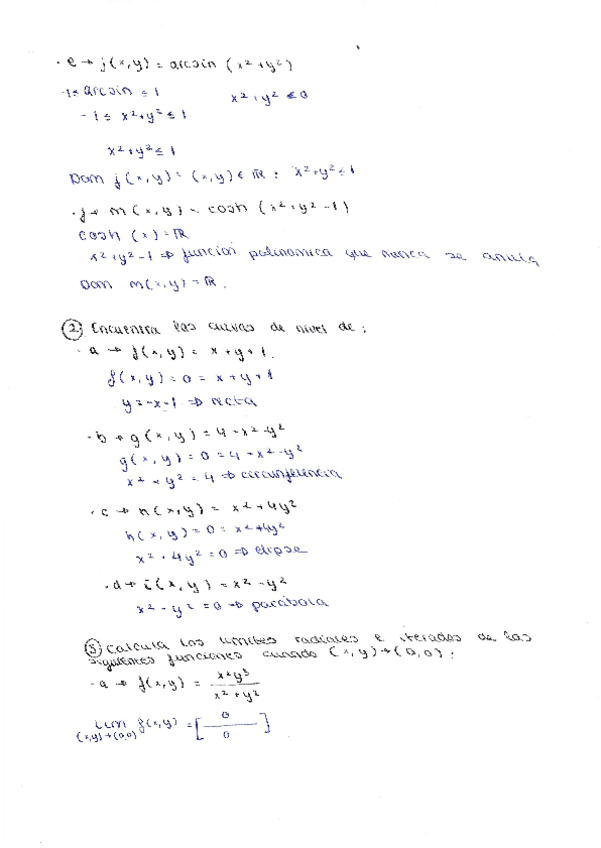 · e → j(x,y) = arcsin (x² + y²)
-1 ≤ arcsin ≤ 1 x² + y² ≤ 0
-1 ≤ x² + y² ≤ 1
x² + y² ≤ 1
Dom j(x,y) = (x,y) ∈ ℝ : x² + y² ≤ 1
· f → m(x,y) = cosh (x² + y² - 1)
cosh (x) = ℝ
x² + y² - 1 ⇒ función polinomica que nunca se anula
Dom m(x,y) = ℝ.
② Encuentra las curvas de nivel de :
· a → f(x,y) = x + y + 1.
f(x,y) = 0 = x + y + 1
y = -x - 1 ⇒ recta
· b → g(x,y) = 4 - x² - y²
g(x,y) = 0 = 4 - x² - y²
x² + y² = 4 ⇒ circunferencia
· c → h(x,y) = x² + 4y²
h(x,y) = 0 = x² + 4y²
x² + 4y² = 0 ⇒ elipse
· d → i(x,y) = x² - y²
x² - y² = 0 ⇒ parábola
③ Calcula los límites radiales e iterados de las
siguientes funciones cuando (x,y) → (0,0) :
· a → f(x,y) = x²y³ / x² + y²
lim (x,y)→(0,0) f(x,y) = [0/0]